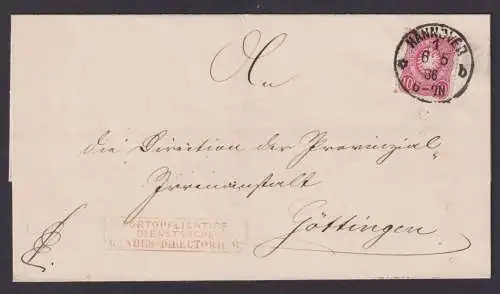 HANNOVER
1
6 5
86
6-7N
a b
10
An
die Direction der Provinzial-
Irrenanstalt
Göttingen.
PORTOPFLICHTIGE
DIENSTSACHE
LANDES-DIRECTORIUM